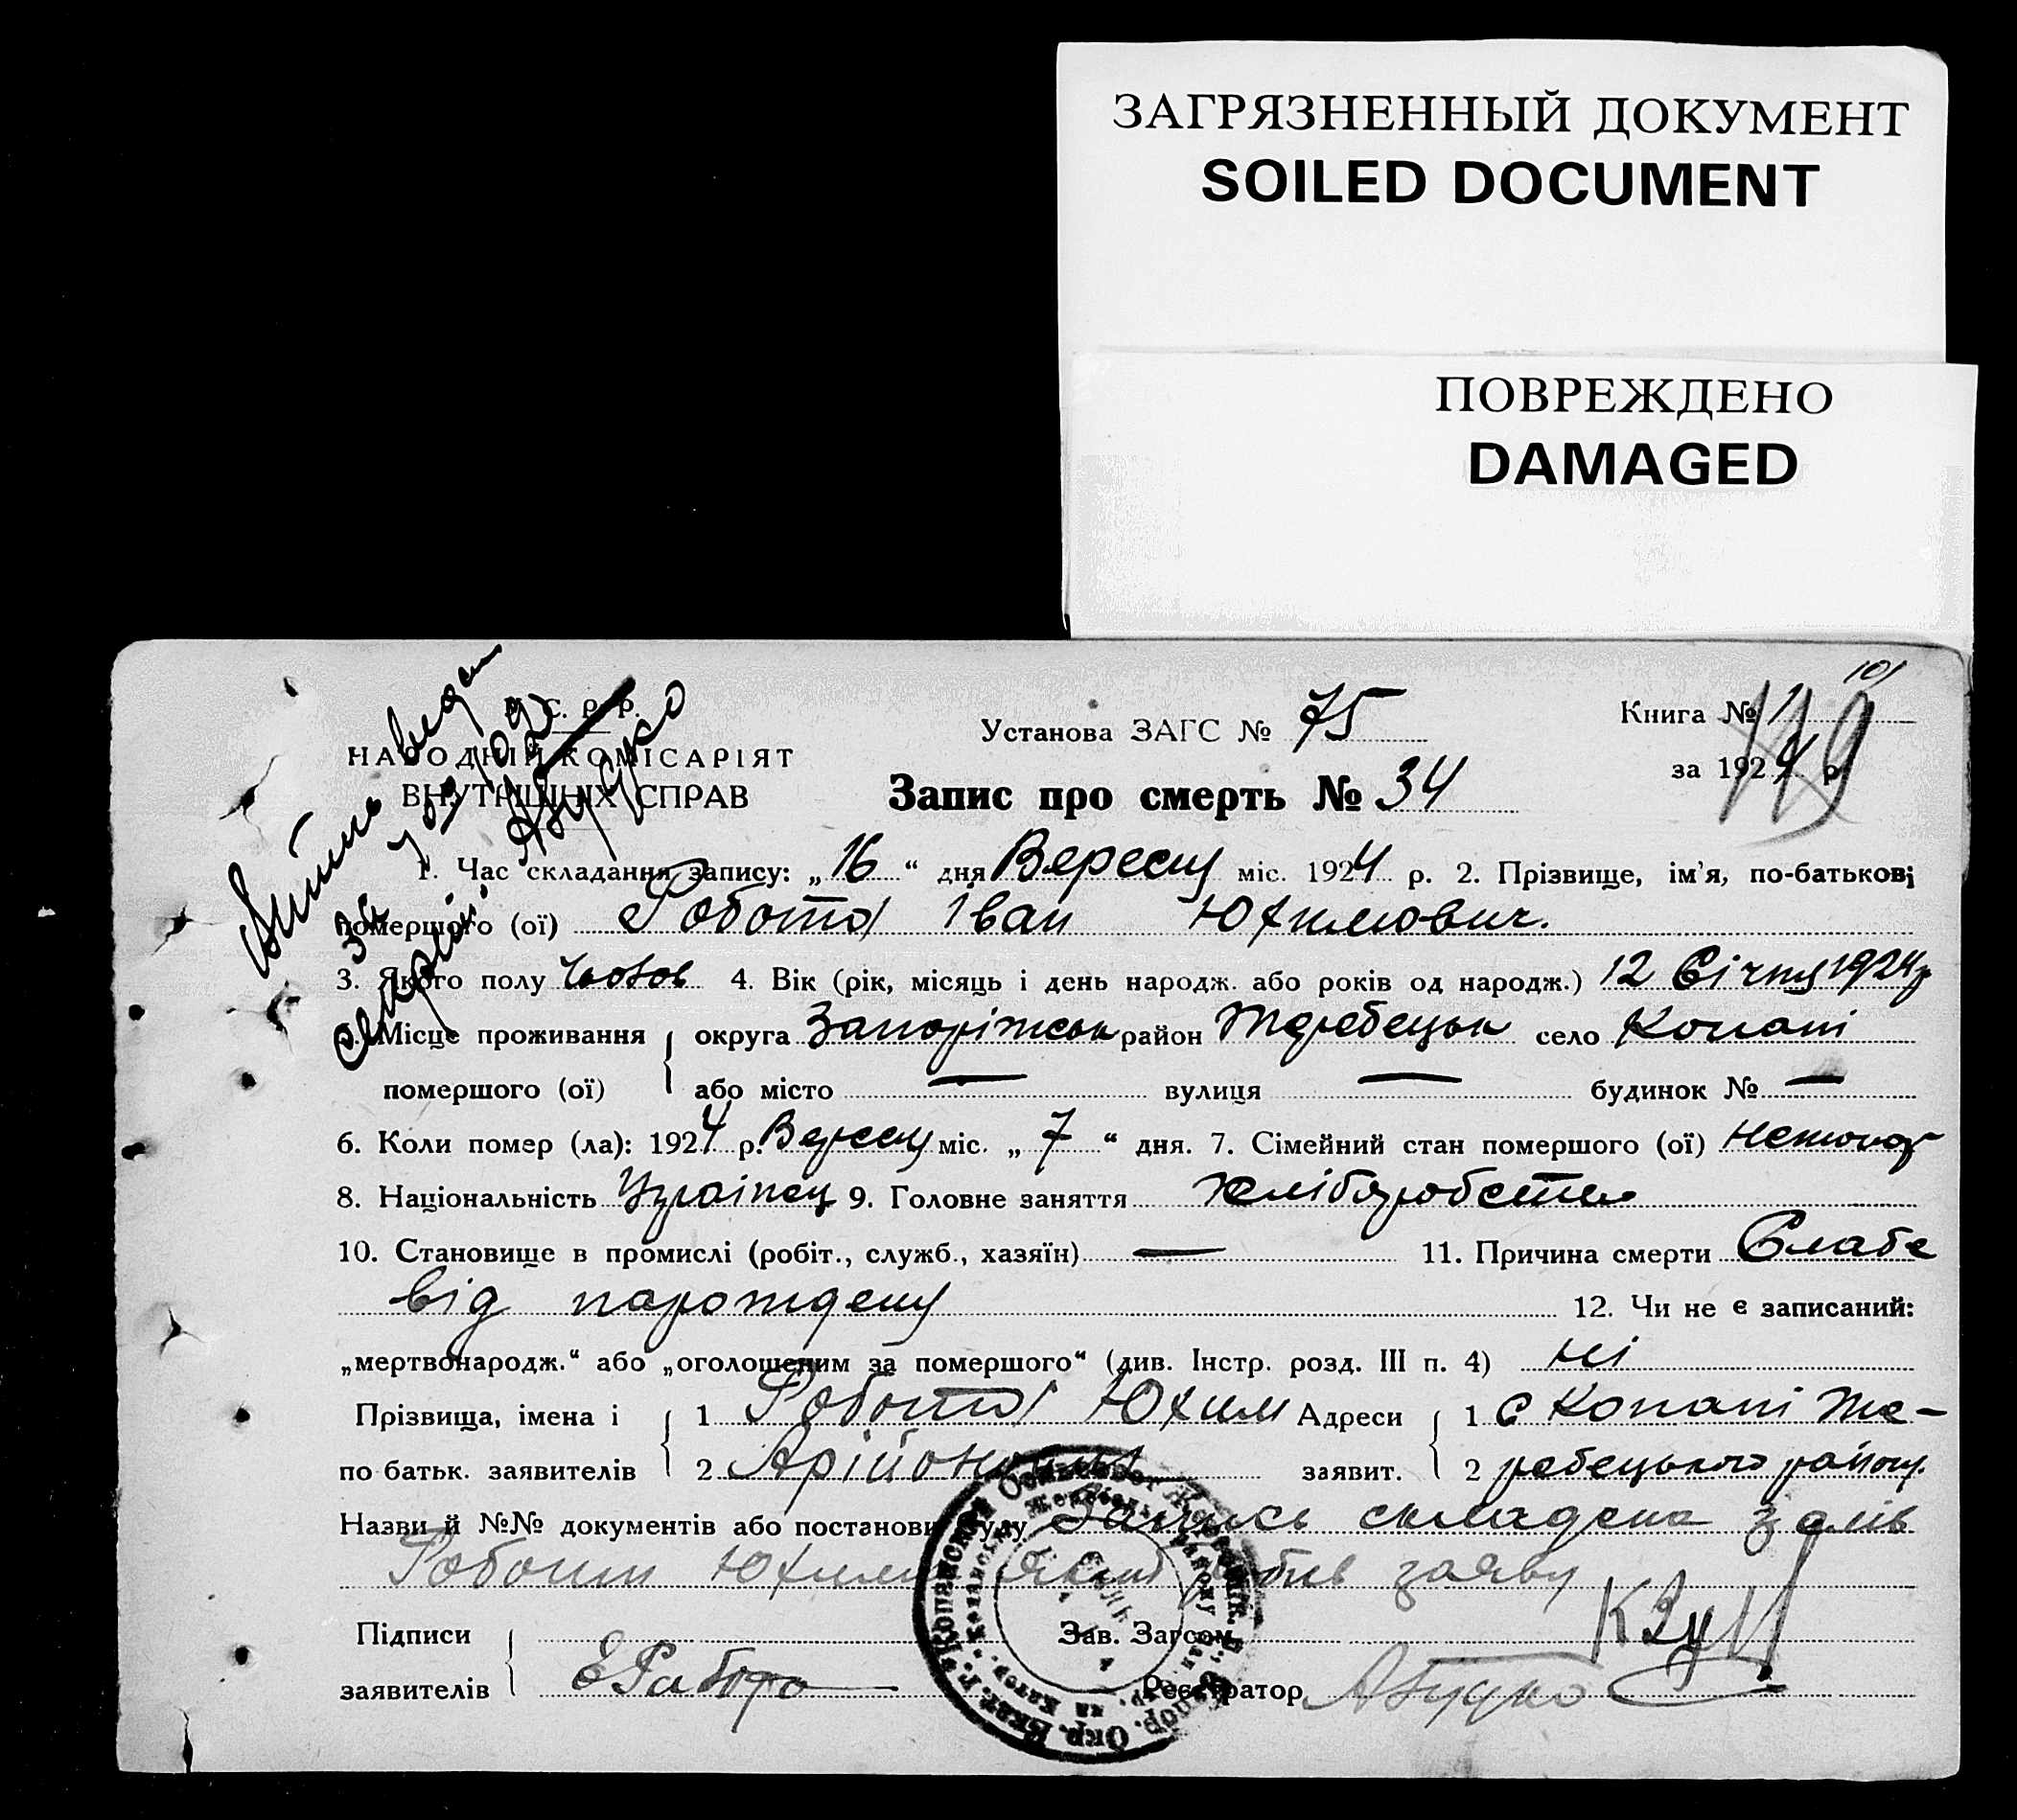 ЗАГРЯЗНЕННЫЙ ДОКУМЕНТ
SOILED DOCUMENT
ПОВРЕЖДЕНО
DAMAGED
101
У. С. Р. Р.
НАРОДНІЙ КОМІСАРІЯТ
ВНУТРІШНІХ СПРАВ
Установа ЗАГС № 75
Книга № 1
за 1924 р.
179
Запис про смерть № 34
1. Час складання запису: „16“ дня Вересня міс. 1924 р. 2. Прізвище, ім'я, по-батькові
помершого (ої) Робота Іван Юхимович.
3. Якого полу чолов 4. Вік (рік, місяць і день народж. або років од народж.) 12 Січня 1924 р
5. Місце проживання округа Запоріжськ район Жеребецьк село Копані
помершого (ої) або місто — вулиця — будинок № —
6. Коли помер (ла): 1924 р. Вересня міс. „7“ дня. 7. Сімейний стан помершого (ої)
8. Національність Українец 9. Головне заняття хліборобство
10. Становище в промислі (робіт., служб., хазяїн) — 11. Причина смерти Слабе
від нарождения 12. Чи не є записаний:
„мертвонародж.“ або „оголошеним за помершого“ (див. Інстр. розд. III п. 4) ні
Прізвища, імена і 1 Робота Юхим Адреси 1 с Копані Же-
по батьк. заявителів 2 заявит. 2 ребецького району.
Назви й №№ документів або постанови суду Запись складена з слів
Роботи Юхима який робив заяву
Підписи Зав. Загсом
заявителів Е Работа Реєстратор